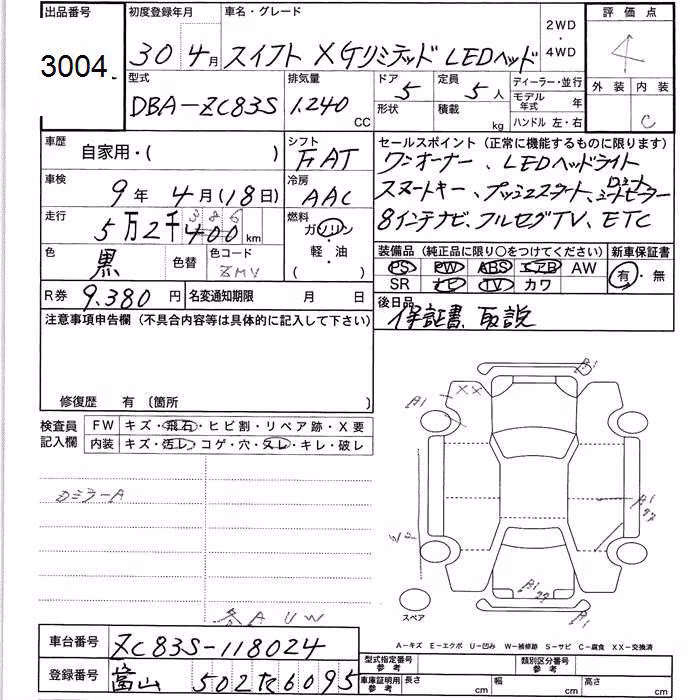 出品番号 3004
初度登録年月 30年4月
車名・グレード スイフト XGリミテッド LEDヘッド
2WD・4WD
評価点 4
外装 内装 C
型式 DBA-ZC83S
排気量 1,240 CC
ドア 5
形状
定員 5人
積載 kg
ディーラー・並行
モデル年式 年
ハンドル 左・右
車歴 自家用・( )
シフト FAT
車検 9年4月(18日)
冷房 AAC
走行 5万2千400km
386
燃料 ガソリン・軽・油 ( )
色 黒 色替
色コード ZMV
R券 9,380円
名変通知期限 月 日
セールスポイント(正常に機能するものに限ります)
ワンオーナー、LEDヘッドライト
スマートキー、プッシュスタート、シートヒーター
8インチナビ、フルセグTV、ETC
装備品(純正品に限り○をつけてください)
PS PW ABS エアB AW
SR ナビ TV カワ
新車保証書 有・無
後日品 保証書、取説
注意事項申告欄(不具合内容等は具体的に記入して下さい)
修復歴 有〔箇所 〕
検査員記入欄
FW キズ・飛石・ヒビ割・リペア跡・X要
内装 キズ・汚レ・コゲ・穴・スレ・キレ・破レ
カミラーA
各AUW
スペア
A-キズ E-エクボ U-凹み W-補修跡 S-サビ C-腐食 XX-交換済
車台番号 ZC83S-118024
登録番号 富山 502 た 6095
型式指定番号 参考
類別区分番号 参考
車庫証明用 参考 長さ cm 幅 cm 高さ cm